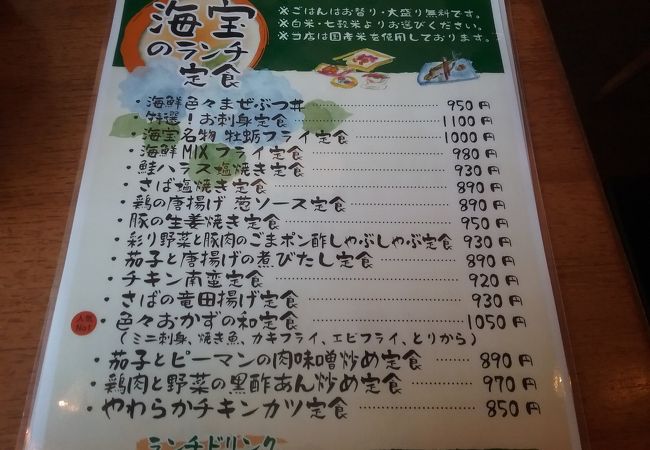 海宝
のランチ
定食
※ごはんはお替り・大盛り無料です。
※白米・七穀米よりお選びください。
※当店は国産米を使用しております。
・海鮮色々まぜぶつ丼 950円
・特選!お刺身定食 1100円
・海宝名物 牡蛎フライ定食 1000円
・海鮮MIXフライ定食 980円
・鮭ハラス塩焼き定食 930円
・さば塩焼き定食 890円
・鶏の唐揚げ 葱ソース定食 890円
・豚の生姜焼き定食 950円
・彩り野菜と豚肉のごまポン酢しゃぶしゃぶ定食 930円
・茄子と唐揚げの煮びたし定食 890円
・チキン南蛮定食 920円
・さばの竜田揚げ定食 930円
人気No1
・色々おかずの和定食 1050円
(ミニ刺身、焼き魚、カキフライ、エビフライ、とりから)
・茄子とピーマンの肉味噌炒め定食 890円
・鶏肉と野菜の黒酢あん炒め定食 970円
・やわらかチキンカツ定食 850円
ランチドリンク